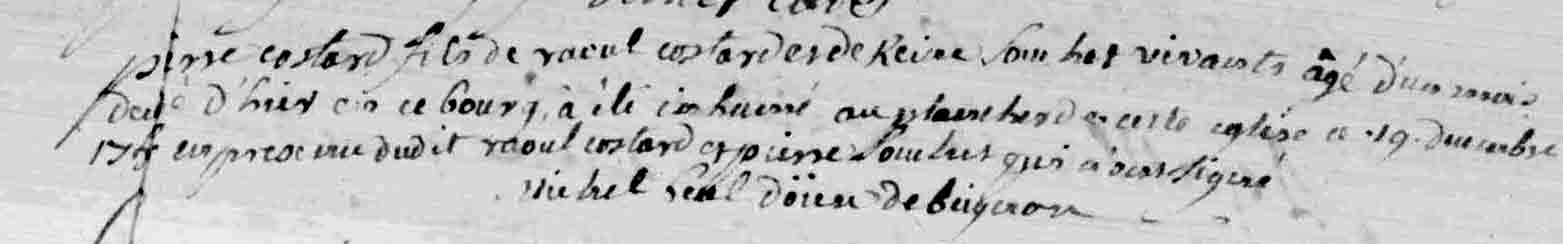 pierre costard fils de raoul costard et de Reine Souhet vivants âgé d'un mois
décédé d'hier en ce bourg, à été inhumé au plancherd de cette eglise ce 19. decembre
en presence dudit raoul costard et pierre Souhet qui n'ont signé
Michel doïen de